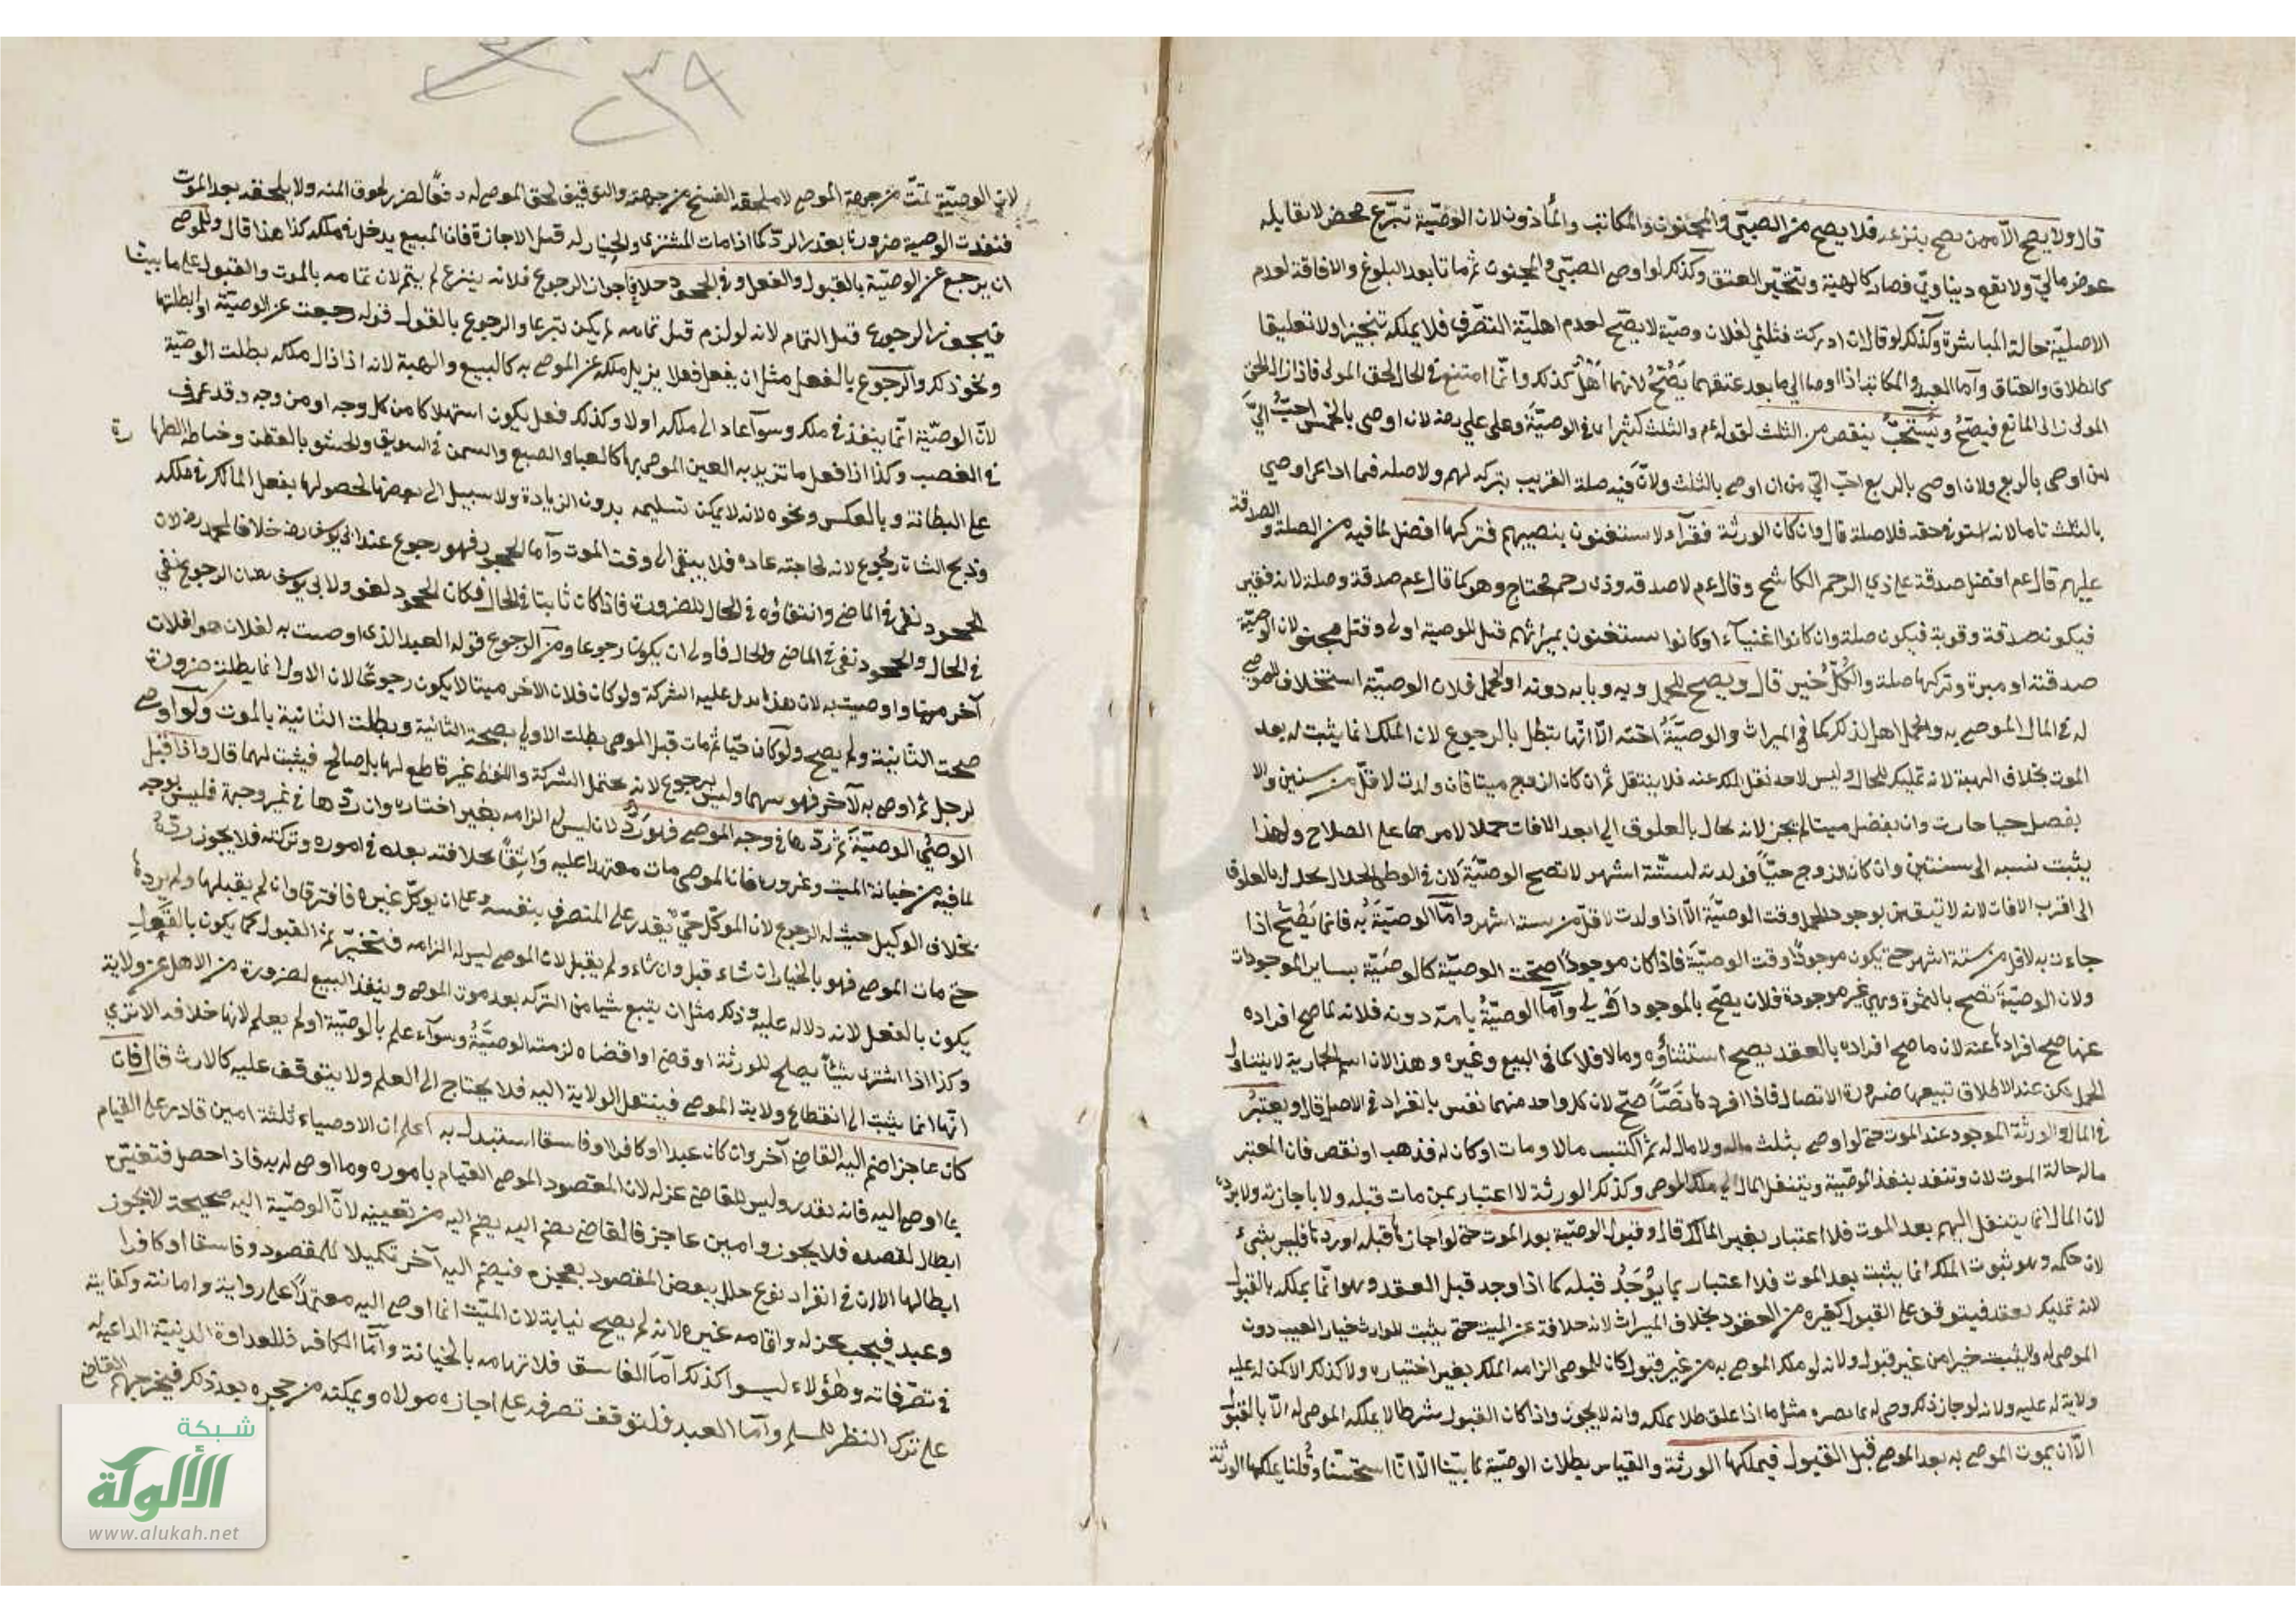 قال ولا يصح الا ممن يصح تبرعه فلا يصح من الصبيّ والمجنون والمكاتب والمأذون لان الوصيّة تبرّع محض لا يقابله
عوض ماليّ ولا نفع دنياويّ فصار كالهبة وتنجيز العتق وكذلك لو اوصى الصبيّ والمجنون ثم ماتا بعد البلوغ والافاقة لعدم
الاصليّة حالة المباشرة وكذلك لو قال ان ادركت فثلثي لفلان وصيّة لا يصحّ لعدم اهليّة التصرّف فلا يملكه تنجيزا ولا تعليقا
كالطلاق والعتاق وأما العبد والمكاتب اذا اوصيا الى ما بعد عتقهما يصُحّ لانهما أهل كذلك وانّما امتنع في الحال لحق المولى فاذا زال حق
المولى زال المانع فيصحّ ويُستحبُّ ينقص من الثلث لقوله عم والثلث كثير في الوصيّة وعلى علي رضه لان اوصى بالخمس احبّ اليّ
من اوصى بالربع ولان اوصى بالربع احبّ اليّ من ان اوصى بالثلث ولانّ فيه صلة القريب بتركه لهم ولا صلة فيما اذا اوصى
بالثلث تاما لانه استوفى حقه فلا صلة قال وان كان الورثة فقرآء لا يستغنون بنصيبهم فتركها افضل لما فيه من الصلة والصدقة
عليهم قال عم افضل صدقة على ذي الرحم الكاشح وقال عم لا صدقه وذى رحم محتاج وهو كما قال عم صدقة وصلة لانه فقير
فيكون صدقة وقربة فيكون صلة وان كانوا اغنيآء او كانوا يستغنون بميراثهم قيل الوصية اولى وقيل مجنو لان الوصيّة
صدقته او مبرة وتركها صلة والكُلُّ خير قال ويصح للحمل وبه وبامّه دونه او الحمل فلان الوصيّة استخلاف الموصى
له في المال الموصى به والحمل اهل لذلك كما في الميراث والوصيّةُ اخته الّا انّها يتبطل بالرجوع لان الملك انما يثبت له بعد
الموت بخلاف الهبة لانه تمليك للحال وليس لاحد نقل الملك عنه فلا ينتقل ثم ان كان الزوج ميتا فان ولدت لاقلّ من سنتين والا
يثبت نسبه الى سنتين وان كان الزوج حيّا فولدته لستّة اشهر لا تصح الوصيّة لان في الوطئ الحلال يحال بالعلوق
الى اقرب الاوقات لانه لا تيقن بوجود الحمل وقت الوصيّة الّا اذا ولدت لاقلّ من ستة اشهر وأمّا الوصيّة به فانما يصحّ اذا
جاءت به لاقل من ستة اشهر حتى يكون موجوداً وقت الوصيّة فاذا كان موجوداً صحّت الوصيّة كالوصيّة بساير الموجودات
ولان الوصيّة تصح بالثمرة وهي غير موجودة فلان يصحّ بالموجود اولى وأمّا الوصيّةُ بامّه دونه فلانه لما صح افراده
عنها صح افرادها عنه لان ما صح افراده بالعقد يصح استثناؤه وما لا فلا كما في البيع وغيره وهذا لان اسم الجارية لا يتناول
الحمل لكن عند الاطلاق تبيعها ضرورة الاتصال فاذا افرد نصّاً صحّ لان كل واحد منهما نفس بانفراد في الاصل قال ويعتبرُ
في المال والورثة الموجود عند الموت حتى لو اوصى بثلث ماله ولا مال له ثم اكتسب مالا ومات او كان له فذهب او نقص فان المعتبر
ماله حالة الموت لان وتنفد بنفذ الوصيّة وينتقل المال الى ملك الموصى وكذلك الورثة لا اعتبار بمن مات قبله ولا باجازته ولا بردّه
لان المال انما ينتقل اليهم بعد الموت فلا اعتبار بغير المالك قال وقبول الوصيّة بعد الموت حتى لو اجازها قبله او ردّها فليس بشيء
لان حكمه وهو ثبوت الملك انما يثبت بعد الموت فلا اعتبار بما يوُجَدُ قبله كما اذا وجد قبل العقد وهو انّما يملكه بالقبول
لانه تمليك بعقد فيتوقف على القبول كغيره من العقود بخلاف الميراث لانه خلافة عن الميت حتى يثبت للوارث خيار العيب دون
الموصى له ولا يثبت خبرا من غير قبوله ولانه لو ملك الموصى به من غير قبول كان للموصى الزامه الملك بغير اختياره ولا كذلك الا كن له عليه
ولاية له عليه ولانه لو جاز ذلك وصى له بما يضره مثل ما اذا علق طلا بملكه وانه لا يجوز واذا كان القبول شرطا لا يملكه الموصى له الّا بالقبول
الّا ان يموت الموصى به بعد الموصى قبل القبول فيملكها الورثة والقياس بطلان الوصيّة لما بيّنا الّا انّا استحسنّا وقُلنا يملكها الورثة
لان الوصيّة تمتّ من جهة الموصى لا يلحقه الفسخ من جهته والتوقيف لحق الموصى له دفعًا لضرر لحوق المنه ولا يلحقه بعد الموت
فنفذت الوصية ضرورة بعذر الردّ كما اذا مات المشترى والخيار له قبل الاجازة فان المبيع يدخل في ملكه كذا هذا قال وللموصى
ان يرجع عن الوصيّة بالقبول والفعل وفي الجحود خلاف اجوان الرجوع فلانه تبرع لم يتم لان تمامه بالموت والقبول على ما بيّنا
فيجوز الرجوع قبل التمام لانه لو لزم قبل تمامه لم يكن تبرعا والرجوع بالقول قوله رجعت عن الوصيّة او ابطلتها
ونحو ذلك والرجوع بالفعل مثل ان يفعل فعلا يزيل ملكه عن الموصى به كالبيع والهبة لانه اذا زال ملكه بطلت الوصيّة
لانّ الوصيّة انّما ينفذ في ملكه وسوآء عاد الى ملكه او لا وكذلك فعل يكون استهلاكا من كل وجه او من وجه وقد عرف
في الغصب وكذا اذا فعل ما تزيد به العين الموصى بها كالعبا والصبغ والسمن في السويق والحشو بالقطن وخياطة الظهارة
على البطانة وبالعكس ونحوه لانه لا يمكن تسليمه بدون الزيادة ولا سبيل الى نقضها لحصولها بفعل المالك في ملكه
وذبح الشاة رجُوع لانه لحاجته عادة فلا يبقى الى وقت الموت وأما الجحود فهو رجوع عند ابي يوسف رضه خلافا لمحمد رضه لان
الجحود نفى في الماضي وانتفاؤه في الحال للضرورة فاذا كان ثابتا في الحال فكان الجحود لغو ولابي يوسف رضه ان الرجوع نفي
في الحال والجحود نفى في الماضي والحال فاولى ان يكون رجوعا ومن الرجوع قوله العبد الذى اوصيت به لفلان هو لفلان
آخر ميتا واوصيت به لان هذا يدل عليه الشركة ولو كان فلان الاخر ميتا لا يكون رجوعًا لان الاول انما يبطلته ضرورة
صحت الثانية ولم يصح ولو كان حيّا ثم مات قبل الموصى بطلت الاولى بصحة الثانية وبطلت الثانية بالموت ولو اوصى
لرجل ثم اوصى به لآخر فهو بينهما وليس برجوع لانه يحتمل الشركة واللفظ غير قاطع لها بل صالح فيثبت لهما قال واذا قبل
الوصيُّ الوصيّة ثم ردّها في وجه الموصى فهو رَدٌّ لانه ليس له الزامه بغير اختياره وان ردّها في غير وجهه فليس بوجه
لما فيه من خيانة الميت وغروره فان الموصى مات معتمدا عليه وَاثِقًا بخلافته بعده في اموره وتركته فلا يجوز ردّه
بخلاف الوكيل حيث له الرجوع لان الموكّل حيّ يقدر على التصرف بنفسه وعلى ان يوكّل غيره فافترقا وان لم يقبلها ولم يردّها
حتى مات الموصى فهو بالخيار ان شاء قبل وان شاء لم يقبل لان الموصى ليس له الزامه فيتخيّر ثم القبول كما يكون بالقول
يكون بالفعل لانه دلاله عليه وذلك مثل ان يبيع شيا من التركه بعد موت الموصى وينفذ البيع لصدوره من الاهل عن ولاية
وكذا اذا اشترى شيئاً يصلح للورثة او قضى او اقتضاه لزمته الوصيّةُ وسوآء علم بالوصيّة او لم يعلم لانها خلافه الا ترى
انّها انما يثبت الى انقطاع ولاية الموصى فينتقل الولاية اليه فلا يحتاج الى العلم ولا يتوقف عليه كالارث قال فان
كان عاجزا ضم اليه القاضى آخر وان كان عبدا او كافرا او فاسقا استبدل به اعلم ان الاوصياء ثلثة امين قادر على القيام
بما اوصى اليه فانه يقدر وليس للقاضى عزله لان المقصود الموصى القيام باموره وما اوصى له به فاذا حصل فتغيّره
ابطال لقصده فلا يجوز وامين عاجز فالقاضى يضم اليه يضم اليه من تعيينه لانّ الوصيّة اليه صحيحة لا يجوز
ابطالها الا ان في انفراده نوع خلل ببعض المقصود بعجزه فيضم اليه آخر تكميلا للمقصود وفاسقا او كافرا
وعبد فيجب عزله واقامه غيره لانه لم يصح نيابة لان الميّت انما اوصى اليه معتمدًا على رواية وامانته وكفاية
في تصرّفاته وهؤلاء ليسوا كذلك أمّا الفاسق فلاتهامه بالخيانة وأمّا الكافر فللعداوة الدينيّة الداعيه له
على ترك النظر للمسلم وأمّا العبد فلتوقف تصرفه على اجازه مولاه ويمكنه من حجره بعد ذلك فيخرجهم القاضى
شبكة
الألوكة
www.alukah.net